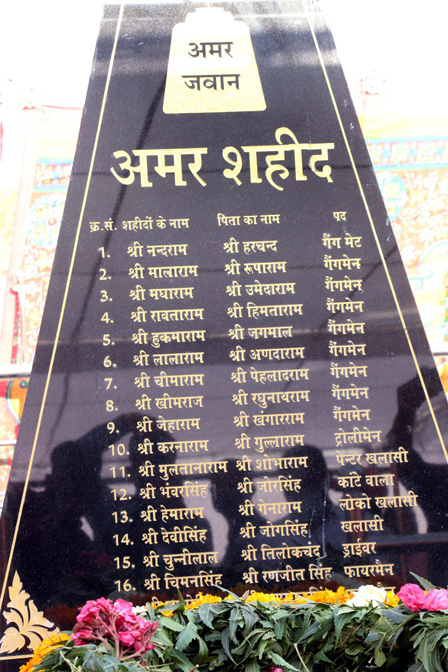 अमर
जवान
अमर शहीद
क्र.सं. शहीदों के नाम पिता का नाम पद
1. श्री नन्दराम श्री हरचन्द गैंग मेट
2. श्री मालाराम श्री रूपाराम गैंगमेन
3. श्री मघाराम श्री उमेदाराम गैंगमेन
4. श्री रावताराम श्री हिमताराम गैंगमेन
5. श्री हुकमाराम श्री जगमाल गैंगमेन
6. श्री लालाराम श्री अणदाराम गैंगमेन
7. श्री चीमाराम श्री पेहलादराम गैंगमेन
8. श्री खीमराज श्री रघुनाथराम गैंगमेन
9. श्री जेहाराम श्री खंगारराम गैंगमेन
10. श्री करनाराम श्री गुल्लाराम ट्रोलीमेन
11. श्री मुलतानाराम श्री शोभाराम पन्टर खलासी
12. श्री भंवरसिंह श्री जोरसिंह कांटे वाला
13. श्री हेमाराम श्री गेनाराम लोको खलासी
14. श्री देवीसिंह श्री जोगसिंह खलासी
15. श्री चुन्नीलाल श्री तिलोकचंद ड्राईवर
16. श्री चिमनसिंह श्री रणजीत सिंह फायरमेन